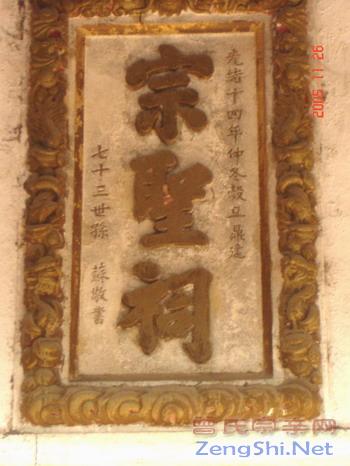 光緒十四年仲冬穀旦鼎建
宗聖祠
七十三世孫 蘇敬書
2005.11.26
曾氏宗亲网
ZengShi.Net